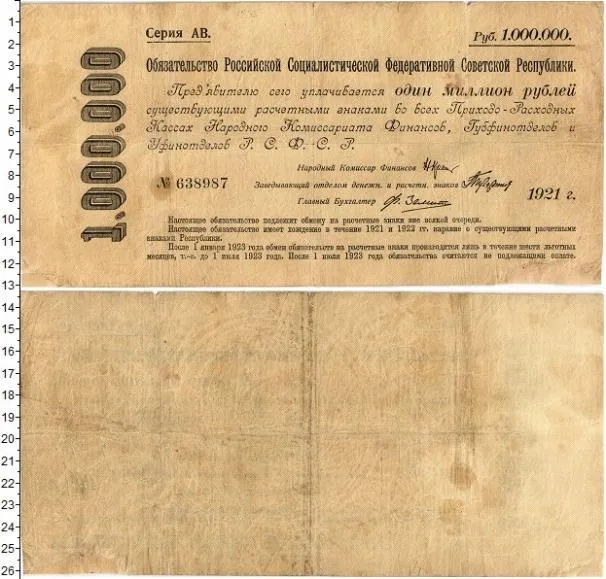 Серия АВ.
Руб. 1.000.000.
1.000.000
Обязательство Российской Социалистической Федеративной Советской Республики.
Пред'явителю сего уплачивается один миллион рублей
существующими расчетными знаками во всех Приходо-Расходных
Кассах Народного Комиссариата Финансов, Губфинотделов и
Уфинотделов Р. С. Ф. С. Р.
Народный Комиссар Финансов
№ 638987
Заведывающий отделом денежн. и расчетн. знаков
Главный Бухгалтер
1921 г.
Настоящее обязательство подлежит обмену на расчетные знаки вне всякой очереди.
Настоящее обязательство имеет хождение в течение 1921 и 1922 гг. наравне с существующими расчетными
знаками Республики.
После 1 января 1923 года обмен обязательств на расчетные знаки производится лишь в течение шести льготных
месяцев, т.-е. до 1 июля 1923 года. После 1 июля 1923 года обязательства считаются не подлежащими оплате.
1
2
3
4
5
6
7
8
9
10
11
12
13
14
15
16
17
18
19
20
21
22
23
24
25
26